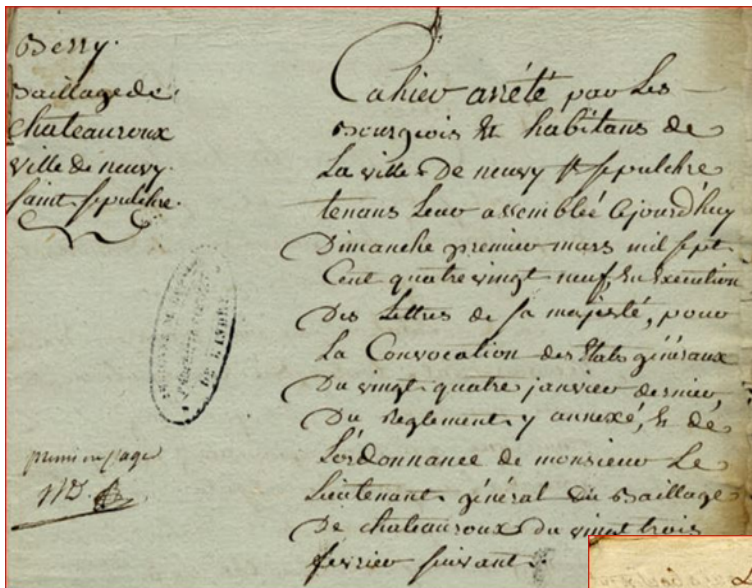 Berry.
Baillage de
chateauroux
ville de neuvy.
saint sepulchre.
premiere page
Cahier arrété par Les
Bourgeois Et habitans de
La ville De neuvy st sepulchre
tenans Leur assemblée cejourd'huy
Dimanche premier mars mil sept
Cent quatre vingt neuf, En Execution
Des Lettres de sa majesté, pour
La Convocation des Etats généraux
Du vingt quatre janvier dernier,
Du Reglement y annexé, Et de
L'ordonnance de monsieur Le
Lieutenant général Du Baillage
De chateauroux Du vingt trois
fevrier suivant.
DE L'INDRE